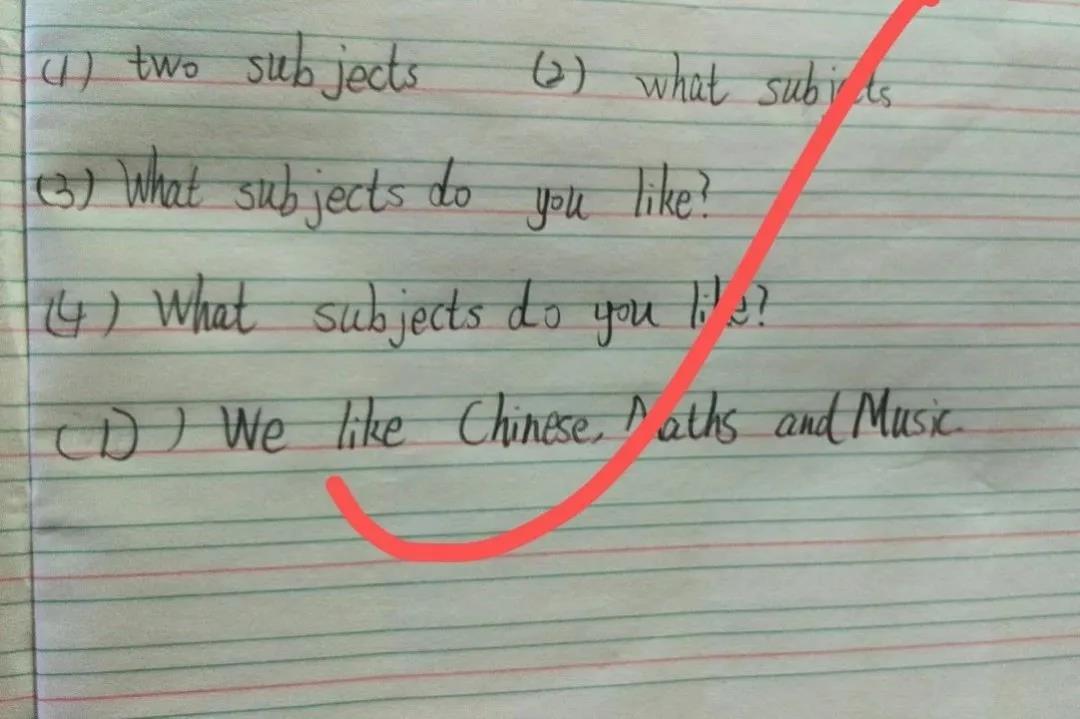 (1) two subjects (2) what subjects
(3) What subjects do you like?
(4) What subjects do you like?
(D) We like Chinese, Maths and Music.